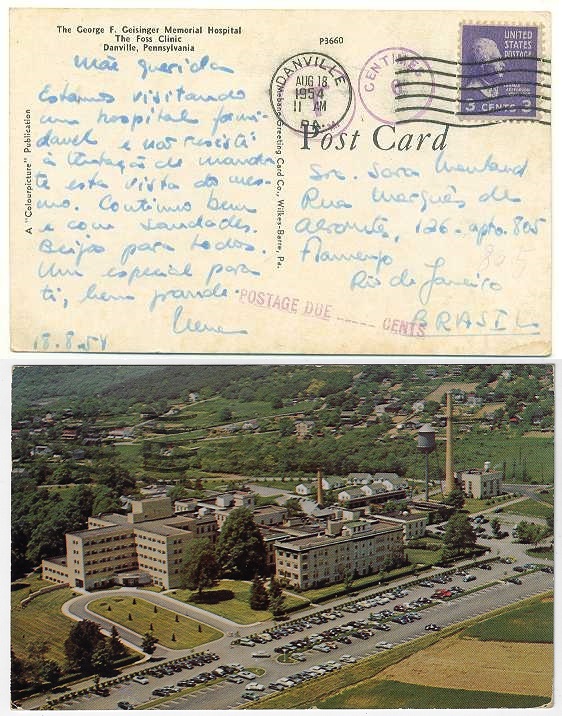 The George F. Geisinger Memorial Hospital
The Foss Clinic
Danville, Pennsylvania
P3660
DANVILLE
AUG 18
11 AM
1954
PA.
CENTIMES
UNITED
STATES
POSTAGE
3 CENTS 3
A "Colourpicture" Publication
Mebane Greeting Card Co., Wilkes-Barre, Pa.
Post Card
Mãe querida
Estamos visitando
um hospital formi-
davel e não resisti
à tentação de mandar
te esta vista do mes-
mo. Continuo bem
e com saudades.
Beijos para todos.
Um especial para
ti, bem grande.
Irene
18.8.54
Sra. Sara
Rua Marquês de
Abrantes, 126 - apto. 805
Flamengo
Rio de Janeiro
BRASIL
805
POSTAGE DUE ____ CENTS